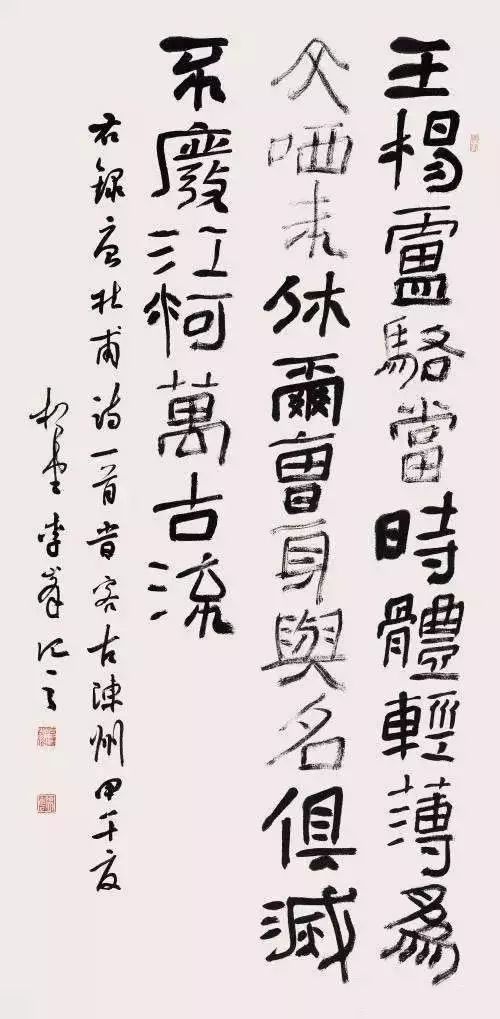 王楊盧駱當時體輕薄爲
文哂未休爾曹身與名俱滅
不廢江河萬古流
右録唐杜甫诗一首昔客古陳州甲午夏
李峯记之